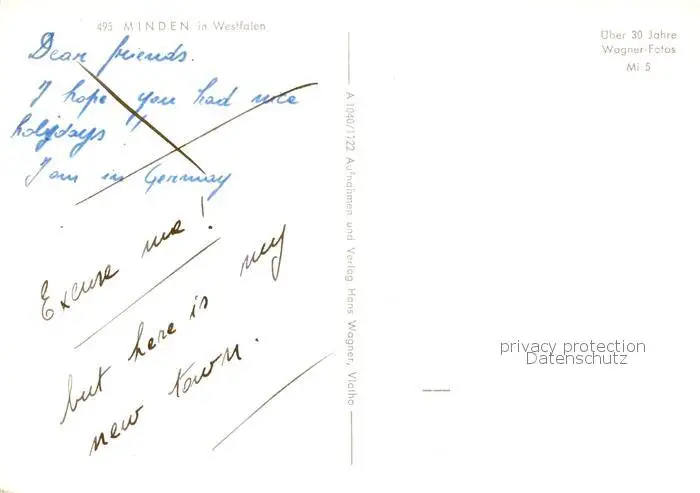 495 MINDEN in Westfalen
Dear friends.
I hope you had nice
holydays!
I am in Germay
Excuse me!
but here is my
new town.
A 1040/1122 Aufnahmen und Verlag Hans Wagner, Vlotho
Über 30 Jahre
Wagner-Fotos
Mi 5
privacy protection
Datenschutz